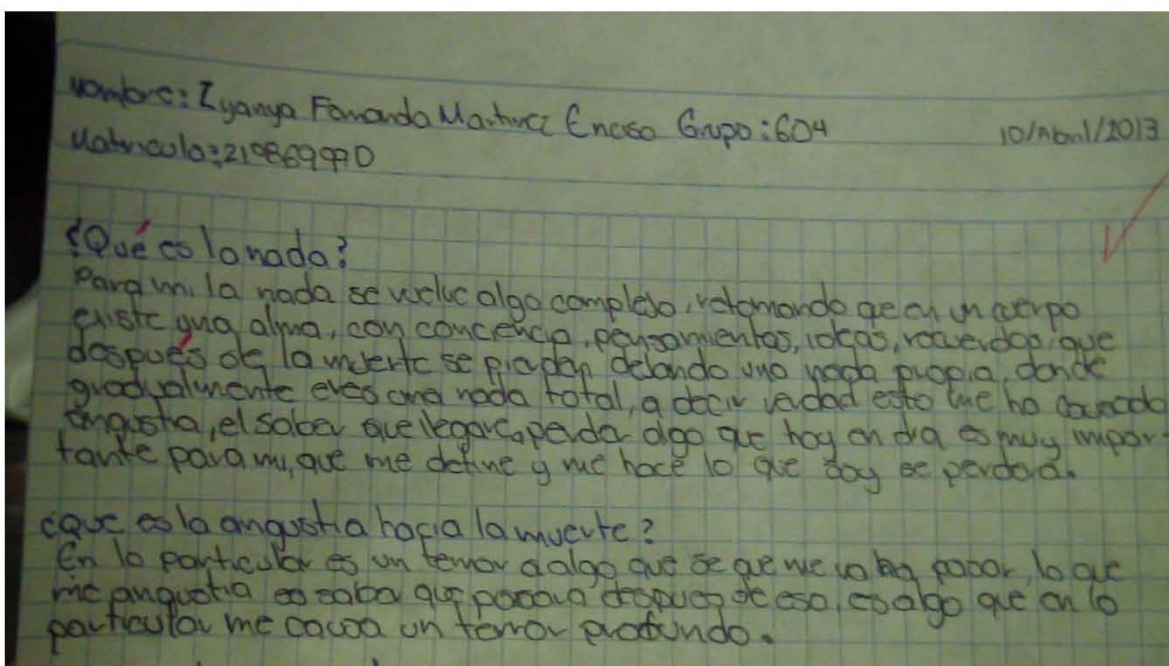 Nombre: Iyanya Fernanda Martinez Enciso Grupo: 604 10/Abril/2013
Matricula: 219869990
¿Qué es la nada?
Para mi la nada se vuelve algo complejo, retomando que en un cuerpo
existe una alma, con conciencia, pensamientos, ideas, recuerdos, que
después de la muerte se pierden dejando una nada propia, donde
gradualmente eres una nada total, a decir verdad esto me ha causado
angustia, el saber que perder algo que hoy en dia es muy impor-
tante para mi, que me define y me hace lo que soy se perderá.
¿Que es la angustia hacia la muerte?
En lo particular es un temor a algo que se que me va a pasar, lo que
me angustia es saber que pasara despues de eso, es algo que en lo
particular me causa un temor profundo.